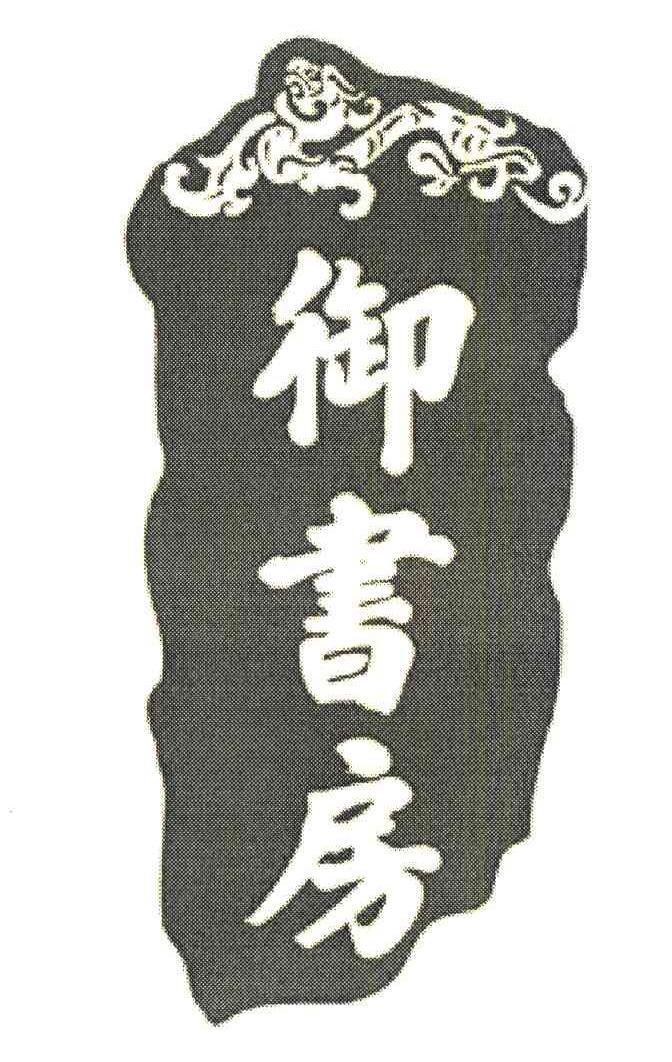 御書房